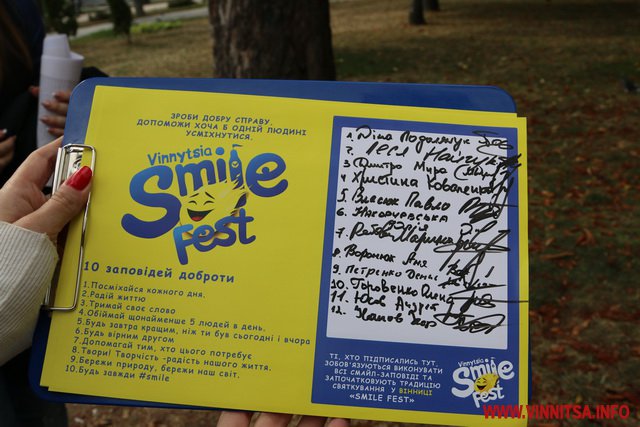 ЗРОБИ ДОБРУ СПРАВУ.
ДОПОМОЖИ ХОЧА Б ОДНІЙ ЛЮДИНІ
УСМІХНУТИСЯ.
Vinnytsia
Smile
Fest
10 заповідей доброти
1.Посміхайся кожного дня.
2.Радій життю
3.Тримай своє слово
4.Обіймай щонайменше 5 людей в день.
5.Будь завтра кращим, ніж ти був сьогодні і вчора
6.Будь вірним другом
7.Допомагай тим, хто цього потребує
8.Твори! Творчість -радість нашого життя.
9.Бережи природу, бережи наш світ.
10.Будь завжди #smile
1.
2.
3 Дмитро Мура
4 Христина Коваленко
5. Власюк Павло
6.
7.
8. Воронюк Яна
9. Петренко Денис
10.
11. Юсов Андрій
12.
ТІ, ХТО ПІДПИСАЛИСЬ ТУТ,
ЗОБОВ'ЯЗУЮТЬСЯ ВИКОНУВАТИ
ВСІ СМАЙЛ-ЗАПОВІДІ ТА
ЗАПОЧАТКОВУЮТЬ ТРАДИЦІЮ
СВЯТКУВАННЯ У ВІННИЦІ
«SMILE FEST»
Vinnytsia
Smile
Fest
WWW.VINNITSA.INFO